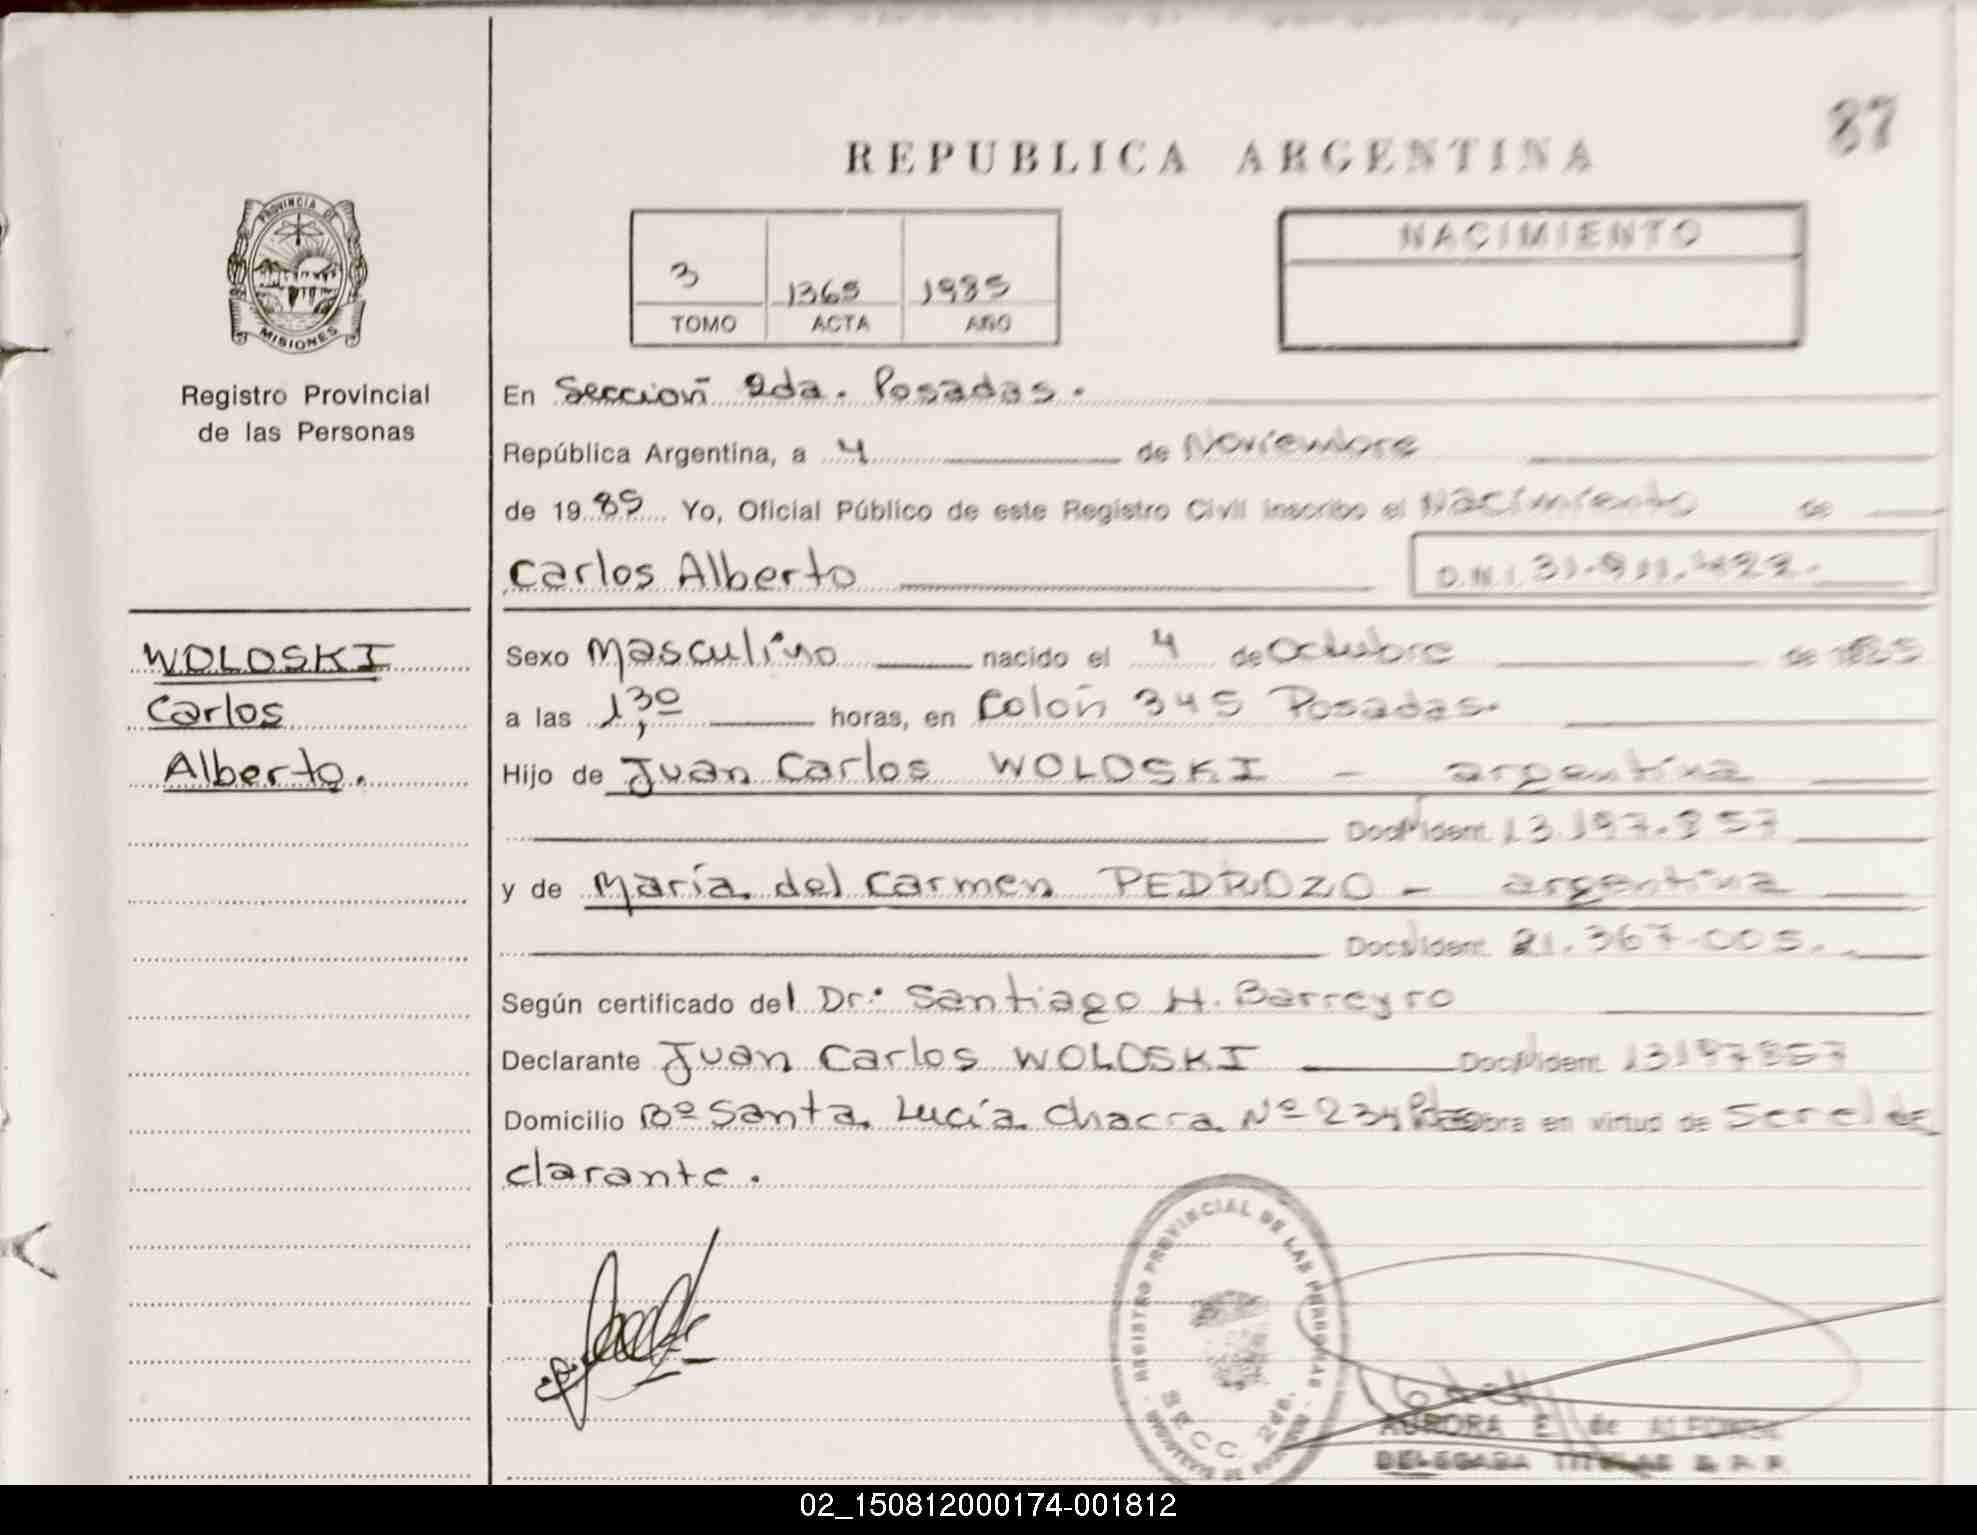 87
REPUBLICA ARGENTINA
PROVINCIA DE
MISIONES
Registro Provincial
de las Personas
3 1365 1985
TOMO ACTA AÑO
NACIMIENTO
En Sección 2da. Posadas.
República Argentina, a 4 de Noviembre
de 1985 Yo, Oficial Público de este Registro Civil inscribo el Nacimiento de
Carlos Alberto
D.N.I.
WOLOSKI
Carlos
Alberto.
Sexo Masculino nacido el 4 de Octubre de 1985
a las 13,º horas, en Colón 345 Posadas.
Hijo de Juan Carlos WOLOSKI - argentina
Doc. Ident. 13.197.857
y de María del Carmen PEDROZO - argentina
Docs. Ident. 21.367.005.
Según certificado del Dr. Santiago H. Barreyro
Declarante Juan Carlos WOLOSKI Doc. Ident. 13197857
Domicilio Bº Santa Lucía Chacra Nº 234 obra en virtud de Ser el de
clarante.
REGISTRO PROVINCIAL DE LAS PERSONAS
SECC. 2da.
AURORA E. de
DELEGADA TITULAR R. P. P.
02_150812000174-001812